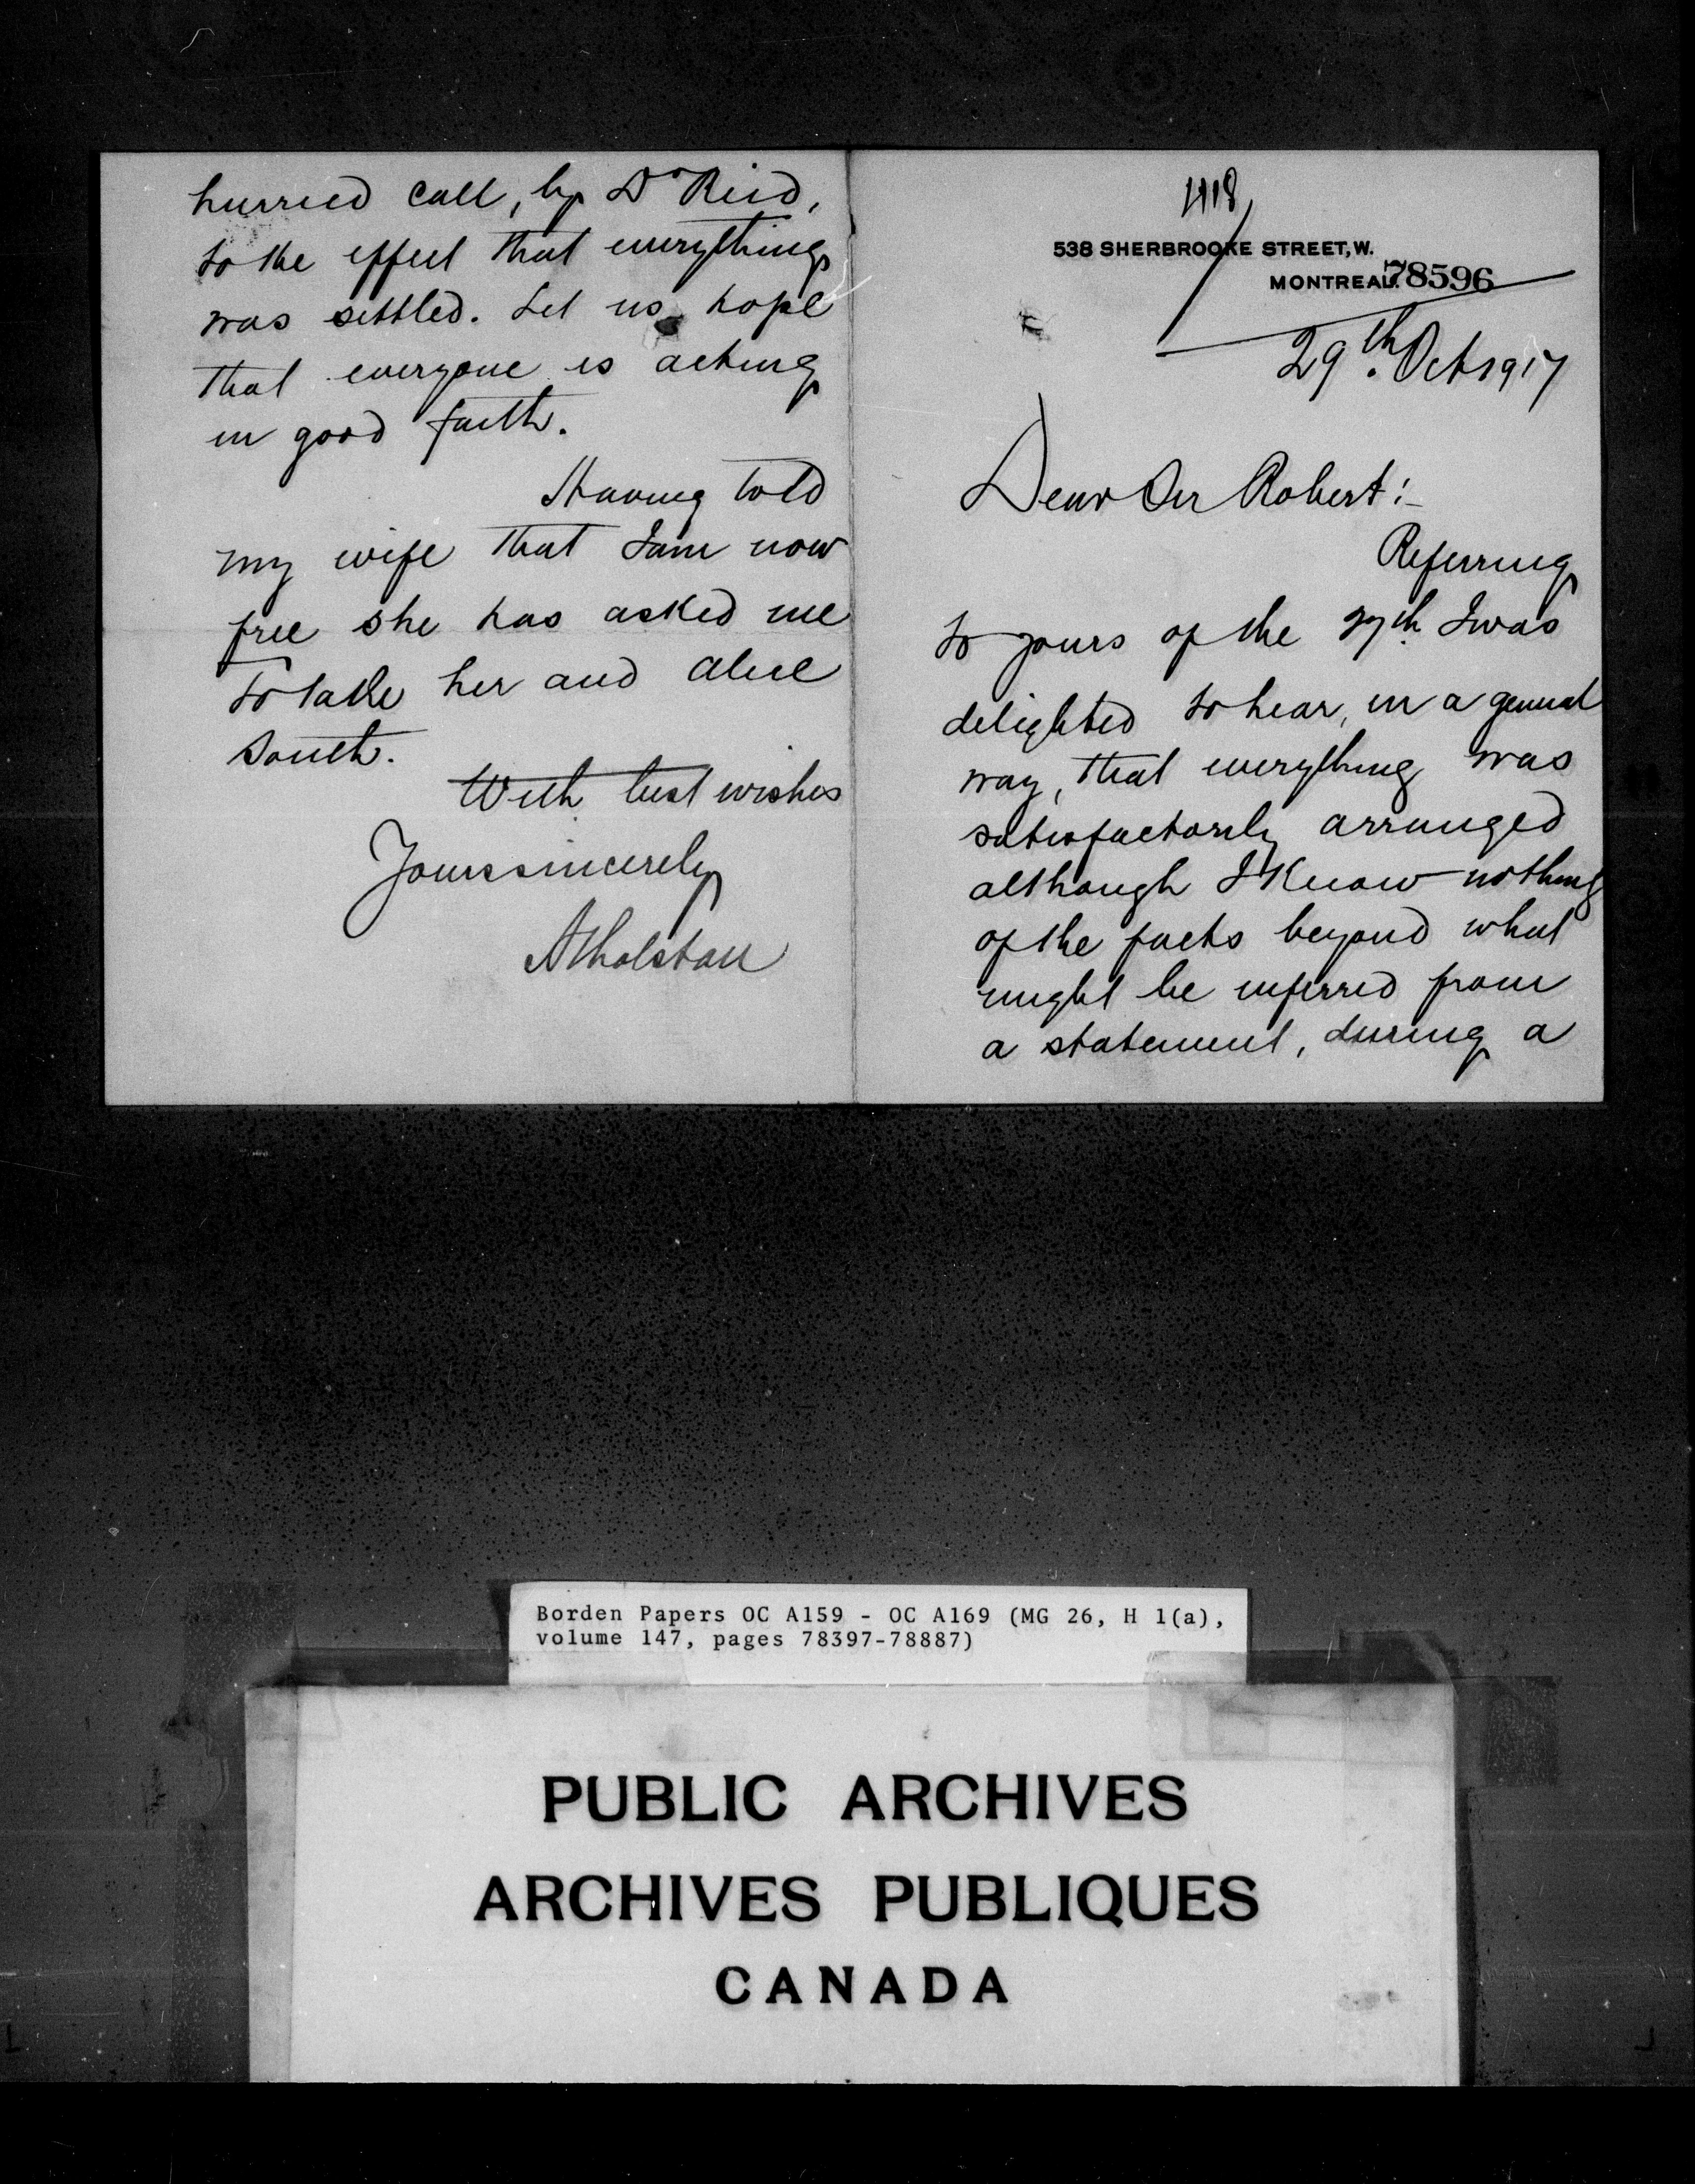 4118
538 SHERBROOKE STREET, W.
MONTREAL. 78596
29th. Oct 1917
Dear Sir Robert:-
Referring
to yours of the 27th I was
delighted to hear, in a general
way, that everything was
satisfactorily arranged
although I know nothing
of the facts beyond what
might be inferred from
a statement, during a
hurried call, by Dr Reid,
to the effect that everything
was settled. Let us hope
that everyone is acting
in good faith.
Having told
my wife that I am now
free she has asked me
to take her and Alice
south.
With best wishes
Yours sincerely
Atholstan
Borden Papers OC A159 - OC A169 (MG 26, H 1(a),
volume 147, pages 78397-78887)
PUBLIC ARCHIVES
ARCHIVES PUBLIQUES
CANADA